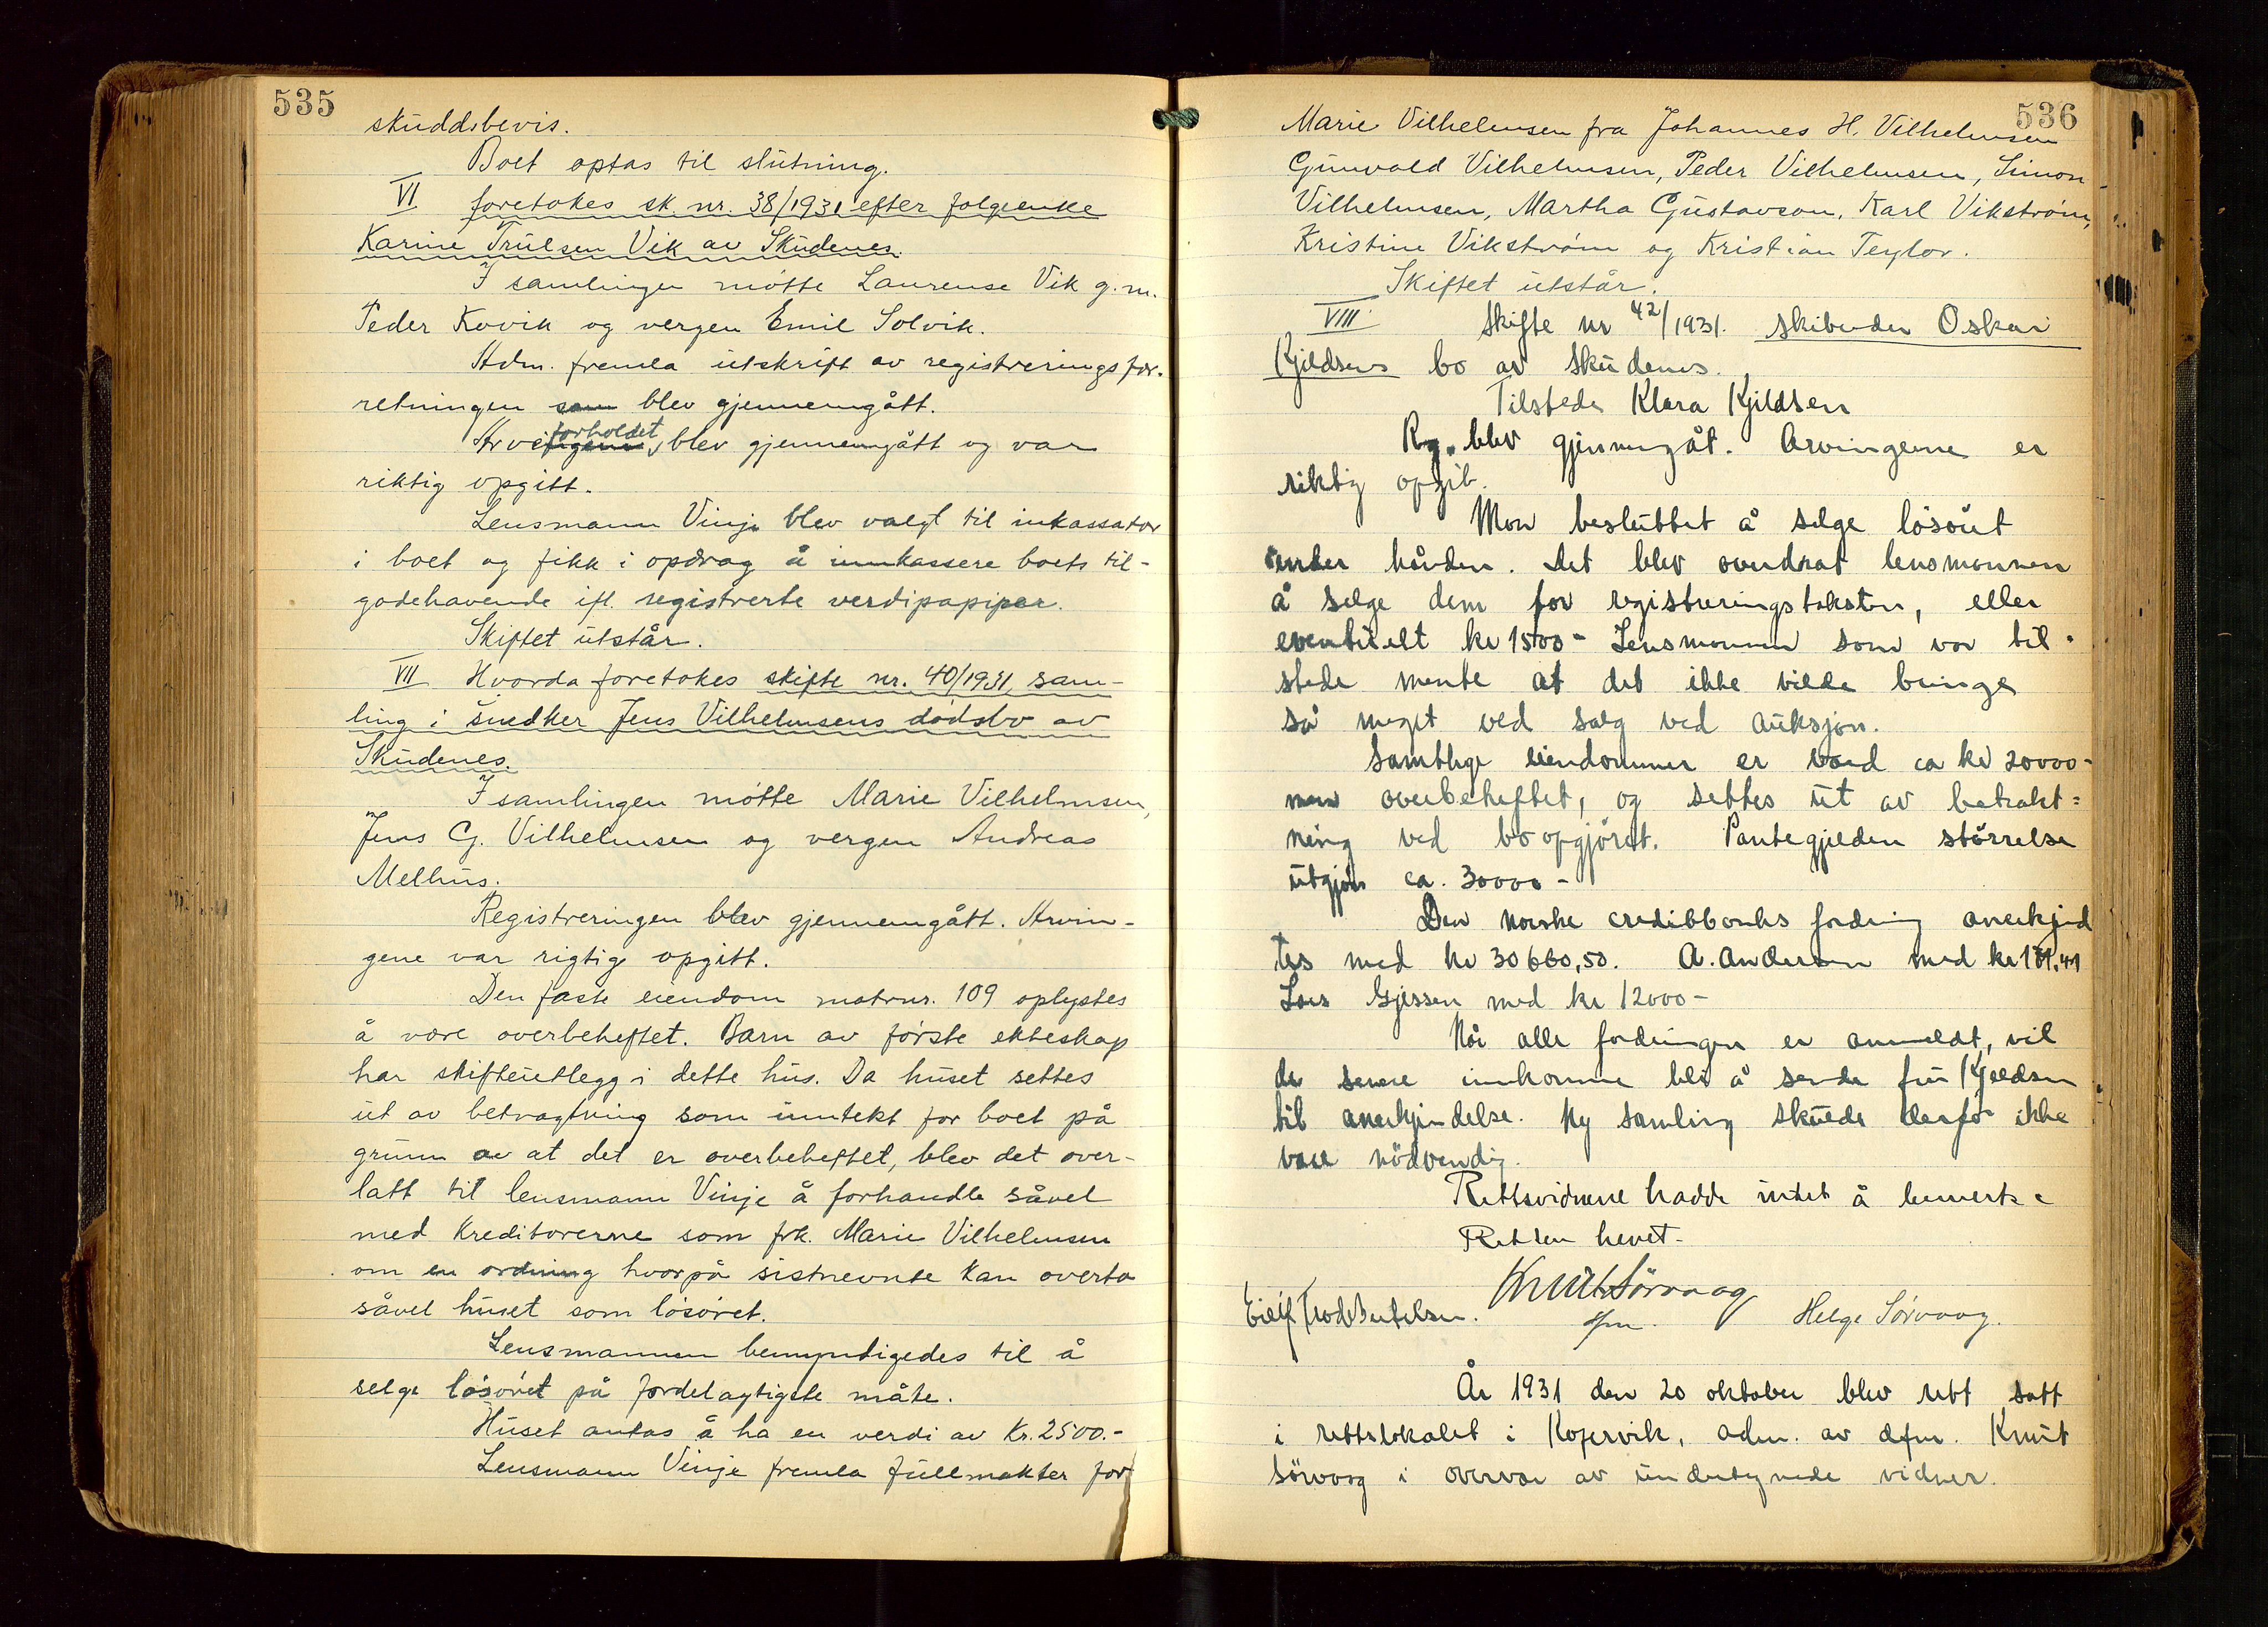 535
skuddsbevis.
Boet optas til slutning.
VI foretokes sk. nr. 38/1931 efter folgeenke
Karine Trulsen Vik av Skudenes.
I samlingen møtte Laurense Vik g.m.
Peder Kovik og vergen Emil Solvik.
Adm. fremla utskrift av registreringsfor-
retningen som blev gjennemgått.
Arveforholdet blev gjennemgått og var
riktig opgitt.
Lensmann Vinje blev valgt til inkassator
i boet og fikk i opdrag å innkassere boets til-
godehavende ifl. registrerte verdipapiper.
Skiftet utstår.
VII Hvorda foretokes skifte nr. 40/1931, sam-
ling i snedker Jens Vilhelmsens dødsbo av
Skudenes.
I samlingen møtte Marie Vilhelmsen,
Jens G. Vilhelmsen og vergen Andreas
Melhus.
Registreringen blev gjennemgått. Arvin-
gene var rigtig opgitt.
Den faste eiendom matrnr. 109 oplystes
å være overbeheftet. Barn av første ekteskap
har skifteutlegg i dette hus. Da huset settes
ut av betragtning som inntekt for boet på
grunn av at det er overbeheftet, blev det over-
latt til lensmann Vinje å forhandle såvel
med kreditorerne som frk. Marie Vilhelmsen
om en ordning hvorpå sistnevnte kan overta
såvel huset som løsøret.
Lensmannen bemyndigedes til å
selge løsøret på fordelagtigste måte.
Huset antas å ha en verdi av Kr. 2500.-
Lensmann Vinje fremla fullmakter for
536
Marie Vilhelmsen fra Johannes H. Vilhelmsen
Gunvald Vilhelmsen, Peder Vilhelmsen, Simon
Vilhelmsen, Martha Gustavson, Karl Vikstrøm,
Kristine Vikstrøm og Kristian Teylor.
Skiftet utstår.
VIII Skifte nr 42/1931. skibsreder Oskar
Kjildsens bo av Skudenes.
Tilstede Klara Kjildsen
Rg. blev gjennemgåt. Arvingerne er
riktig opgit.
Man besluttet å selge løsøret
under hånden. Det blev overdrat lensmannen
å selge dem for registreringstaksten, eller
eventuelt kr 1500- Lensmannen som var til-
stede mente at det ikke vilde bringe
så meget ved salg ved auksjon.
Samtlige eiendommer er værd ca kr 20000-
men overbeheftet, og settes ut av betrakt-
ning ved boopgjøret. Pantegjelden størrelse
utgjør ca. 30000-
Den norske creditbanks fordring anerkjend
tes med kr 30660,50. A. Andersen med kr 191,41
Lars Gjessen med kr 12000-
Når alle fordringer er anmeldt, vil
de senere innkomne bli å sende fru Kjeldsen
til anerkjendelse. Ny samling skulde derfor ikke
være nødvendig.
Rettsvidnene hadde intet å bemerke
Retten hevet-
Knut Sørvaag
Eilif Bertelsen. dfm. Helge Sørvaag.
År 1931 den 20 oktober blev rett satt
i rettslokalet i Kopervik, adm. av dfm. Knut
Sørvaag i overvær av undertegnede vidner.